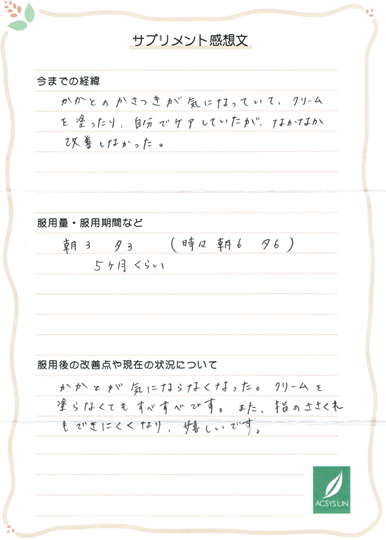 サプリメント感想文
今までの経緯
かかとのかさつきが気になっていて、クリーム
を塗ったり、自分でケアしていたが、なかなか
改善しなかった。
服用量・服用期間など
朝3 夕3 (時々 朝6 夕6)
5ヶ月くらい
服用後の改善点や現在の状況について
かかとが気にならなくなった。クリームを
塗らなくてもすべすべです。また、指のささくれ
もできにくくなり、嬉しいです。
ACSYS UN